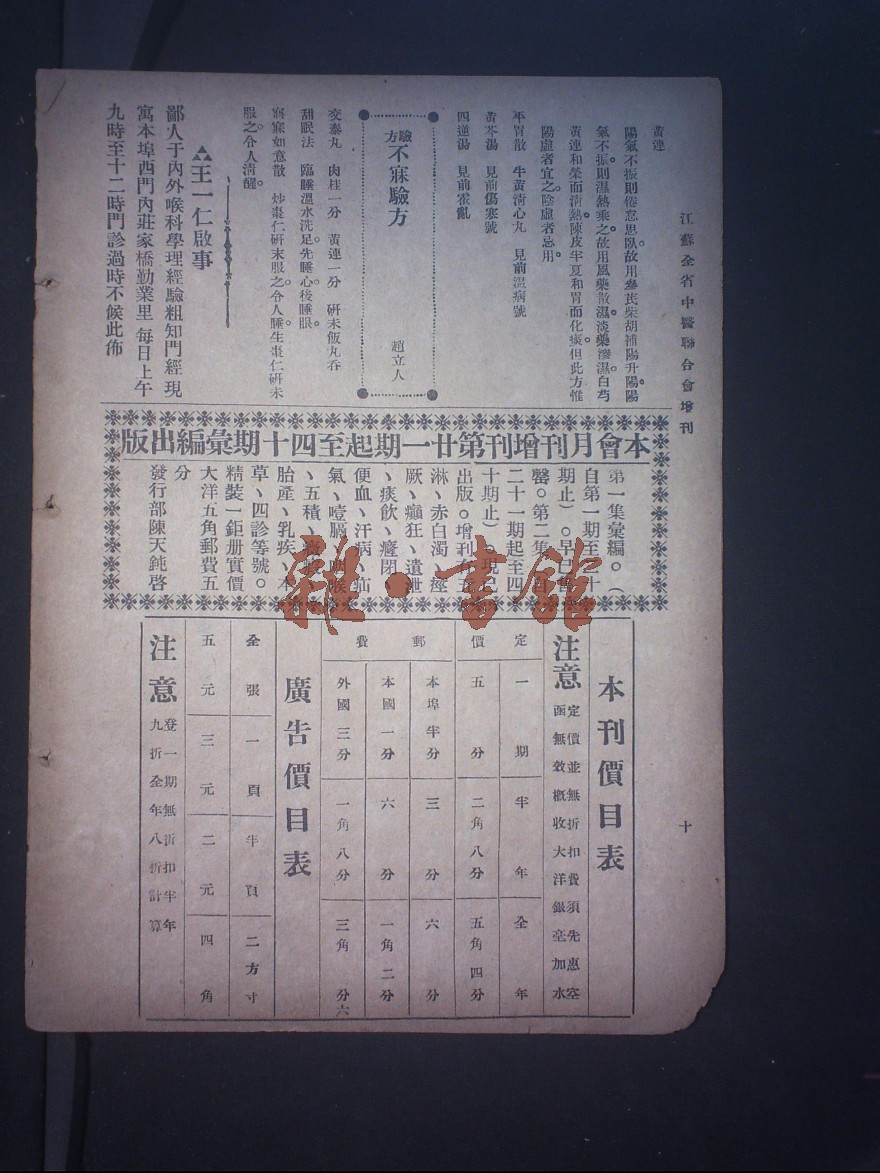 江蘇全省中醫聯合會增刊
十
黃連
陽氣不振則倦怠思臥故用參芪柴胡補陽升陽陽
氣不振則濕熱乘之故用風藥散濕淡藥滲濕白芍
黃連和榮而清熱陳皮半夏和胃而化痰但此方惟
陽虛者宜之陰虛者忌用
平胃散 牛黃清心丸 見前溫病號
黃芩湯 見前傷寒號
四逆湯 見前霍亂
驗方
不寐驗方
趙立人
交泰丸 肉桂一分 黃連一分 研末飯丸吞
甜眠法 臨睡溫水洗足先睡心後睡眼
寤寐如意散 炒棗仁研末服之令人睡生棗仁研末
服之令人清醒
王一仁啟事
鄙人于內外喉科學理經驗粗知門經現
寓本埠西門內莊家橋勤業里 每日上午
九時至十二時門診過時不候此佈
本會月刊增刊第廿一期起至四十期彙編出版
第一集彙編。（
自第一期至
期止）。早已售
罄。第二集
二十一期起至四
十期止）現已
出版。增刊
淋、赤白濁、痙
厥、癲狂、遺泄
、痰飲、癃閉
便血、汗病、疝
氣、噎膈、咽喉
、五積、
胎產、乳疾、本
草、四診等號。
精裝一鉅册實價
大洋五角郵費五
分
發行部陳天鈍啓
本刊價目表
注意
定價並無折扣費須先惠空
函無效概收大洋銀毫加水
定價 郵費
一期 半年 全年
五分 二角八分 五角四分
本埠半分 三分 六分
本國一分 六分 一角二分
外國三分 一角八分 三角六分
廣告價目表
全張 一頁 半頁 二方寸
五元 三元 二元 四角
注意
登一期無折扣半年
九折全年八折計算
雜·書館